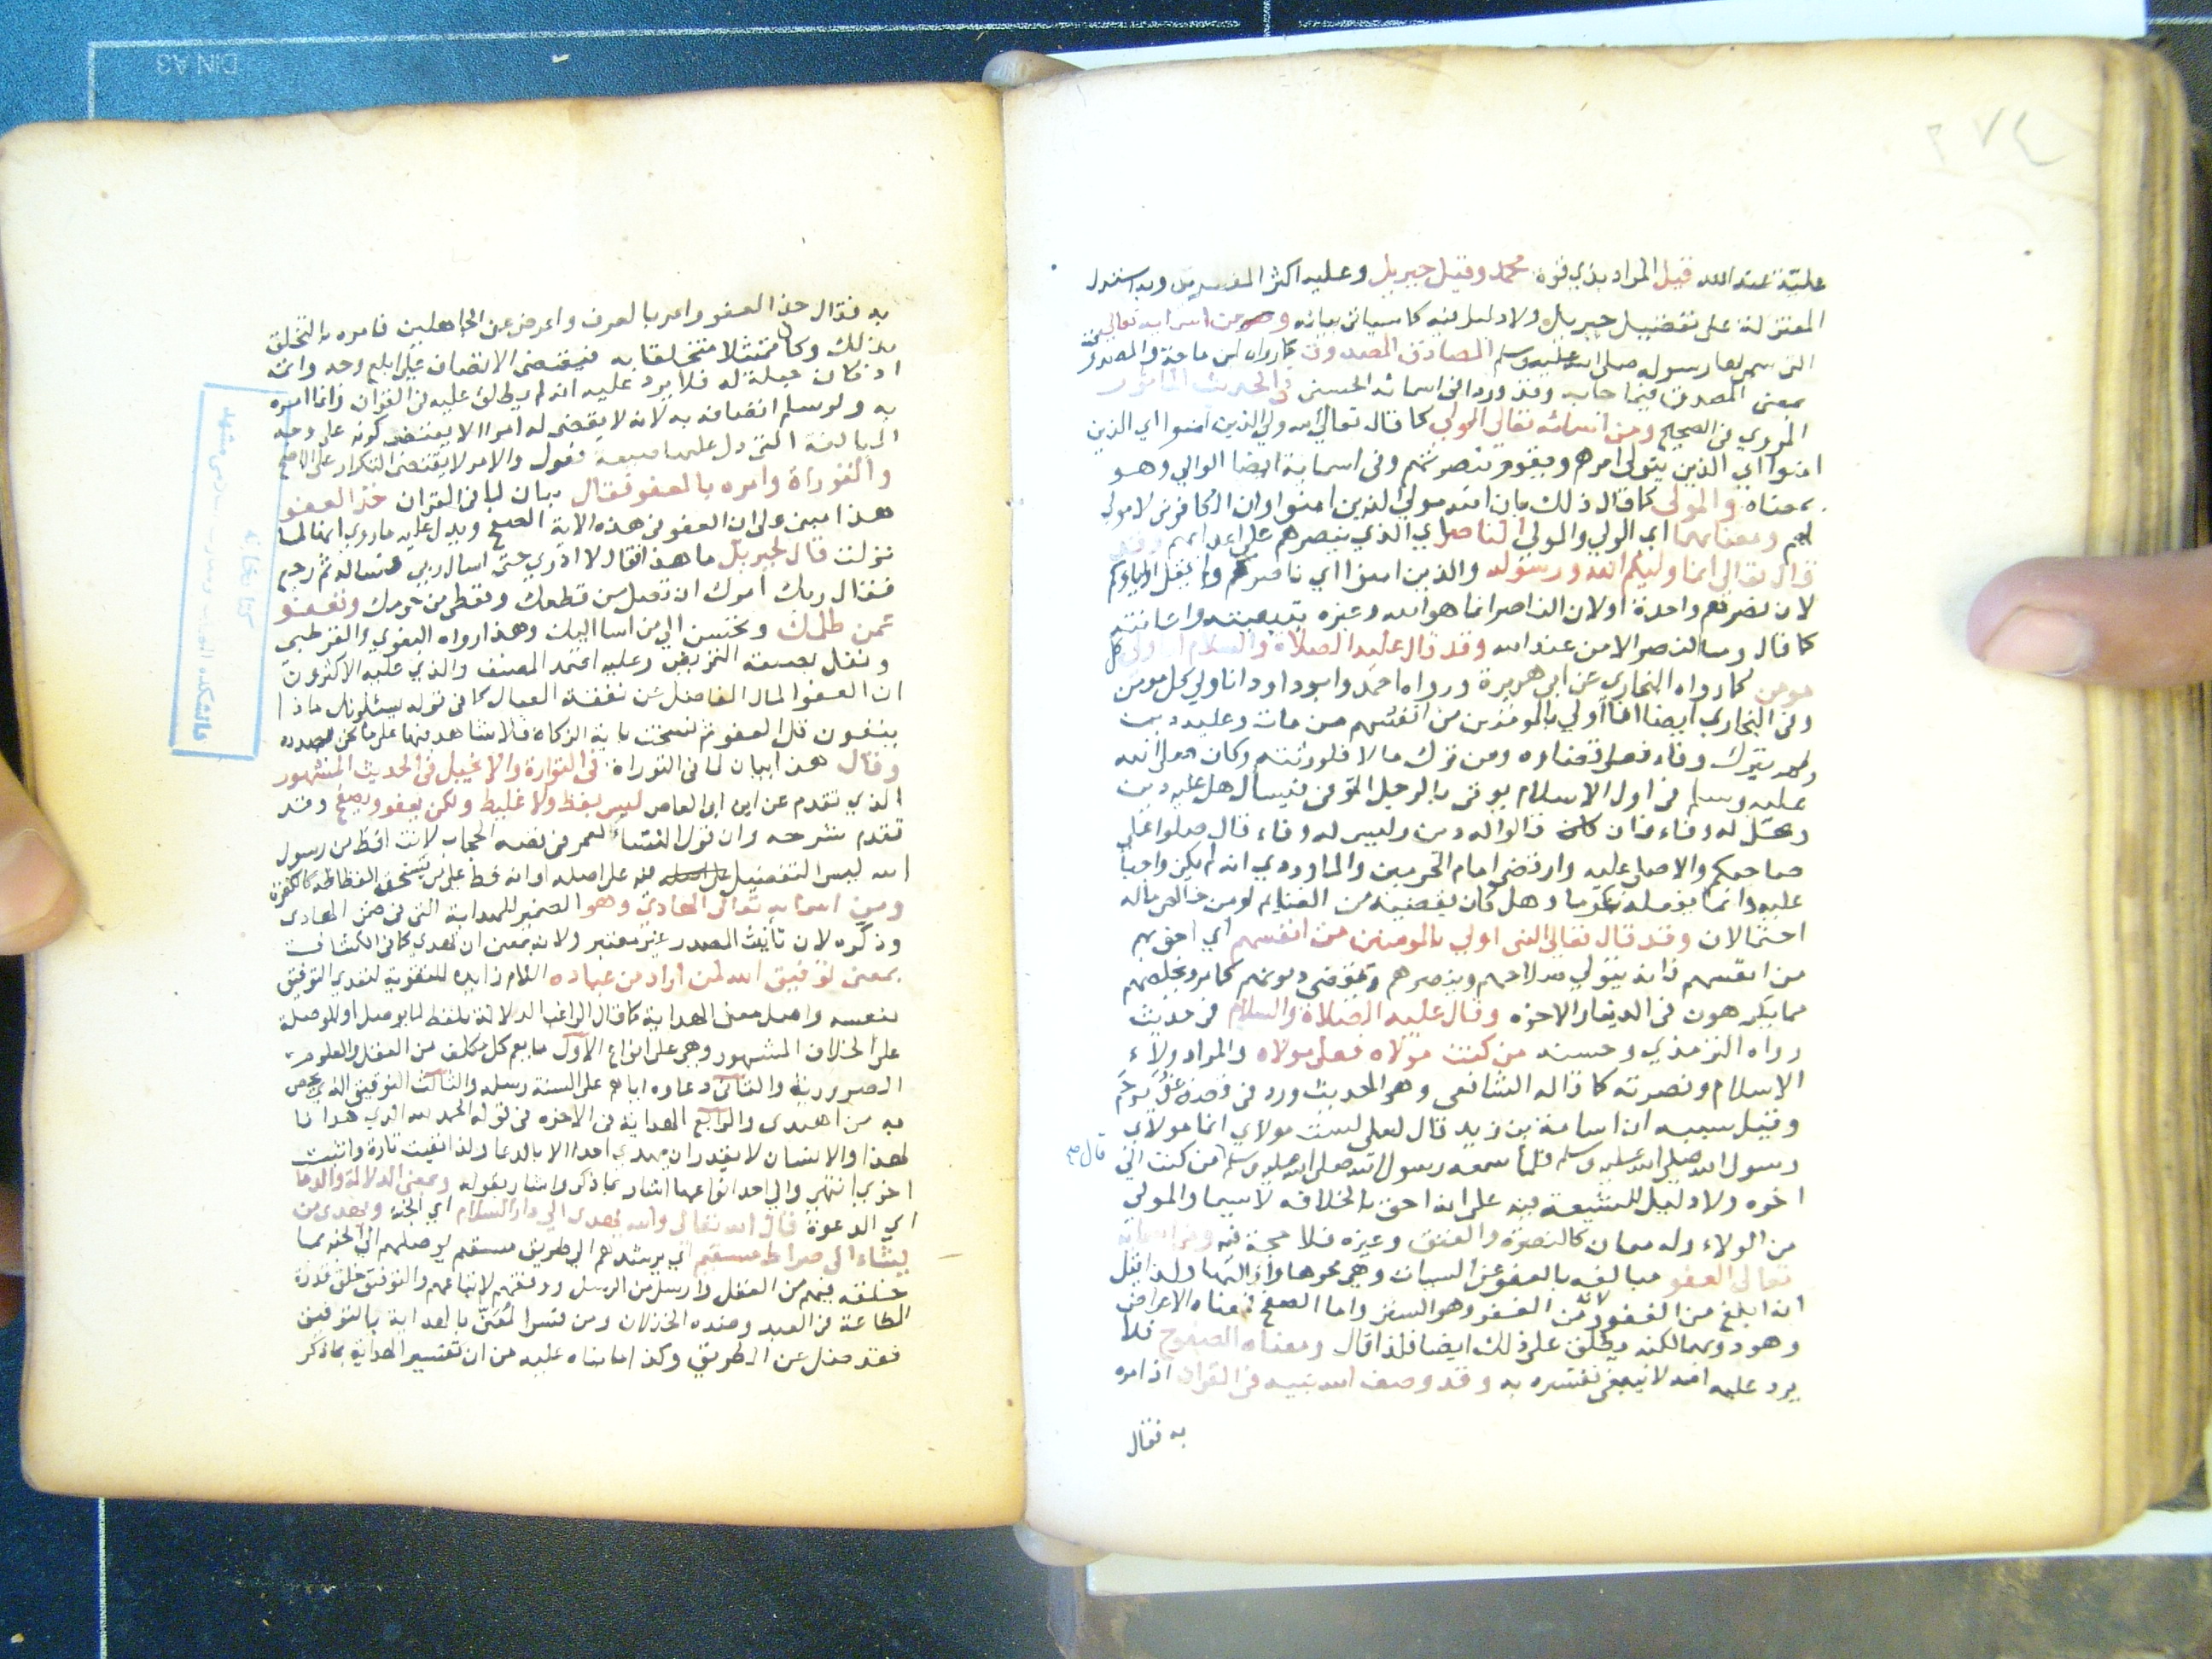 ٢٧٤
علية عند الله قيل المراد بذي قوة محمد وقيل جبريل وعليه اكثر المفسرين وبه استدل
المعتزلة على تفضيل جبريل ولا دليل فيه كما سياتي بيانه ومن اسمايه تعالى
التي سمى بها رسوله صلى الله عليه وسلم الصادق المصدوق كما رواه ابن ماجة والمصدوق
بمعنى المصدق فيما جاء به وقد ورد في اسمائه الحسنى في الحديث الماثور
المروي في الصحيح ومن اسمائه تعالى المولى كما قال تعالى الله ولي الذين امنوا اي الذين
امنوا اي الذين يتولى امرهم ويقوم بنصرتهم وفي اسمايه ايضا الوالي وهو
بمعناه والمولى كما قال ذلك بان الله مولى الذين امنوا وان الكافرين لا مولى
لهم ومعناهما اي الولي والمولى الناصر اي الذي ينصرهم على اعدائهم وقد
قال تعالى انما وليكم الله ورسوله والذين امنوا اي ناصركم ولم يقل اولياؤكم
لان نصرتهم واحدة او لان الناصر انما هو الله وغيره بتبعيته واعانته
كما قال وما النصر الا من عند الله وقد قال عليه الصلاة والسلام انا ولي كل
مومن كما رواه البخاري عن ابي هريرة ورواه احمد وابو داود انا ولي كل مومن
وفي البخاري ايضا انا اولى بالمومنين من انفسهم فمن مات وعليه دين
ولم يترك وفاء فعلى قضاوه ومن ترك مالا فلورثته وكان صلى الله
عليه وسلم في اول الاسلام يوتى بالرجل المتوفى فيسال هل عليه دين
وهل له وفاء فان قالوا له دين وليس له وفاء قال صلوا على
صاحبكم والا صلى عليه وارتضى امام الحرمين والماوردي انه لم يكن واجبا
عليه وانما يفعله تكرما وهل كان يقضيه من الغنايم او من خالص ماله
احتمالان وقد قال تعالى النبي اولى بالمومنين من انفسهم اي احق بهم
من انفسهم فانه يتولى صلاحهم وينصرهم ويقضي ديونهم كما مر ويخلصهم
مما يكرهون في الدنيا والاخرة وقال عليه الصلاة والسلام في حديث
رواه الترمذي وحسنه من كنت مولاه فعلي مولاه والمراد ولاء
الاسلام ونصرته كما قاله الشافعي وهو الحديث ورد في قصة غدير خم
وقيل سببه ان اسامة بن زيد قال لعلي لست مولاي انما مولاي
رسول الله صلى الله عليه وسلم فلما سمعه رسول الله صلى الله عليه وسلم من كنت الى
قال صح
اخره ولا دليل للشيعة فيه على انه احق بالخلافة لا سيما والمولى
من الولاء وله معان كالنصرة والعتق وغيره فلا حجة فيه ومن اسمائه
تعالى العفو مبالغة بالعفو عن السيات وهي محوها وازالتها ولذا قيل
انه ابلغ من الغفور لانه من الغفر وهو الستر واما الصفح فمعناه الاعراض
وهو دونهما لكنه يطلق على ذلك ايضا فلذا قال ومعناه الصفوح فلا
يرد عليه انه لا ينبغي تفسيره به وقد وصف الله نبيه في القران اذ امره
به فقال
به فقال خذ العفو وامر بالعرف واعرض عن الجاهلين فامره بالتخلق
بذلك وكان ممتثلا متخلقا به فيقتضي الاتصاف على ابلغ وجه وانه
اذ كان جبلة له فلا يرد عليه انه لم يطلق عليه في القران وانما امره
به ولو سلم اتصافه به لانه لا يقتضى له امر الا يقتضي كونه على وجه
المبالغة التي دل عليها صيغة فعول والامر لا يقتضي التكرار على الاصح
والتوراة وامره بالعفو فقال بيان لما في القران خذ العفو
هذا مبني على ان العفو في هذه الاية الصفح ويدل عليه ما روي انها لما
نزلت قال لجبريل ما هذا فقال لا ادري حتى اسال ربي فساله ثم رجع
فقال ربك امرك ان تصل من قطعك وتعطي من حرمك وتعفو
عمن ظلمك وتحسن الى من اسا اليك وهذا رواه البغوي والقرطبي
ونقل بصيغة التمريض وعليه اعتمد المصنف والذي عليه الاكثرون
ان العفو المال الفاضل عن نفقة العيال كما في قوله يسئلونك ماذا
ينفقون قل العفو ثم نسخت باية الزكاة فلا شاهد فيها على ما نحن بصدده
وقال هذا بيان لما في التوراة في التوارة والانجيل في الحديث المشهور
الذي تقدم عن ابن ابي العاص ليس بفظ ولا غليظ ولكن يعفو ويصفح وقد
تقدم شرحه وان قول النساء لعمر في قصة الحجاب لانت افظ من رسول
الله ليس التفضيل فيه على اصله او انه فظ على من يستحق الفظاظة كالكفرة
ومن اسمايه تعالى الهادي وهو الضمير للهداية التي في ضمن الهادى
وذكره لان تأنيث المصدر غير معتبر ولانه بمعنى ان يهدي كما في الكشاف
بمعنى توفيق الله لمن اراد من عباده اللام زايدة للتقوية لتعدي التوفيق
بنفسه واصل معنى الهداية كما قال الراغب الدلالة بلطف لما يوصل او الموصلة
على الخلاف المشهور وهي على انواع الاول ما يعم كل مكلف من العقل والعلوم
الضرورية والثاني دعاوه اياهم على السنة رسله والثالث التوفيق الذي يخص
به من اهتدى والرابع الهداية في الاخرة في قوله الحمد لله الذي هدانا
لهذا والانسان لا يقدر ان يهدي احدا الا بالدعاء ولذا نفيت تارة واثبتت
اخرى انتهى والى احد انواعها اشار بما ذكر واشار بقوله وبمعنى الدلالة والدعا
اي الدعوة قال الله تعالى والله يدعو الى دار السلام اي الجنة ويهدي من
يشاء الى صراط مستقيم اي يرشدهم الى طريق مستقيم يوصلهم الى الجنة بما
خلقه فيهم من العقل وارسل من الرسل ووفقهم لاتباعهم والتوفيق خلق قدرة
الطاعة في العبد وضده الخذلان ومن فسر المعنى بالهداية بالتوفيق
فقد ضل عن الطريق وكذا ما بناه عليه من ان تفسير الهداية بما ذكر
كتابخانه
دانشكده